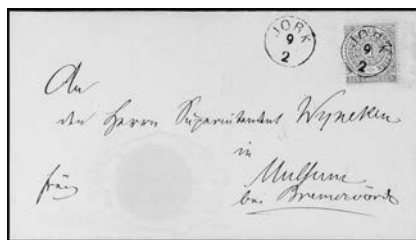 JORK
9
2
JORK
9
2
An
den Herrn Superintendent Wyneken
in
Mulsum
bei Bremervörde
frei